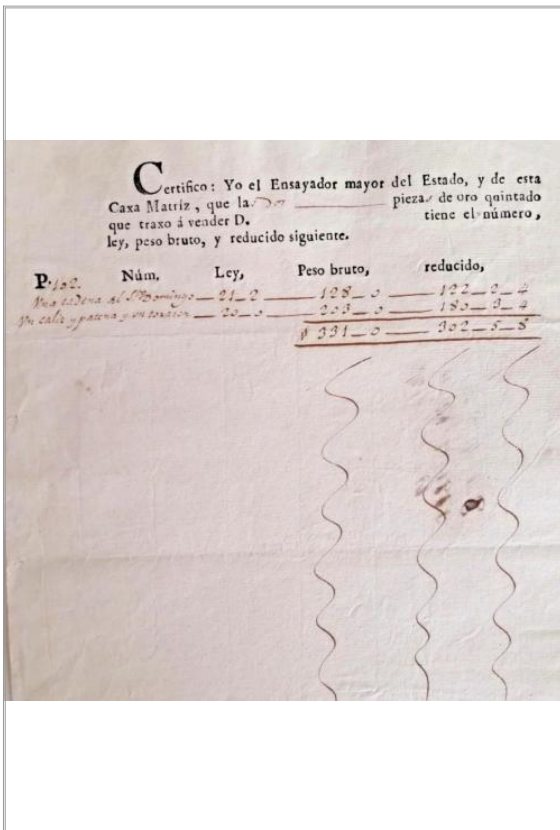 Certifico: Yo el Ensayador mayor del Estado, y de esta
Caxa Matríz, que la Dos pieza.s de oro quintado
que traxo á vender D. tiene el número,
ley, peso bruto, y reducido siguiente.
P. 102. Núm, Ley, Peso bruto, reducido,
Una cadena de Sto Domingo — 21 — 2 — 128 — 0 — 122 — 2 — 4
Un caliz y patena — 20 — 0 — 203 — 0 — 180 — 3 — 4
331 — 0 — 302 — 5 — 8